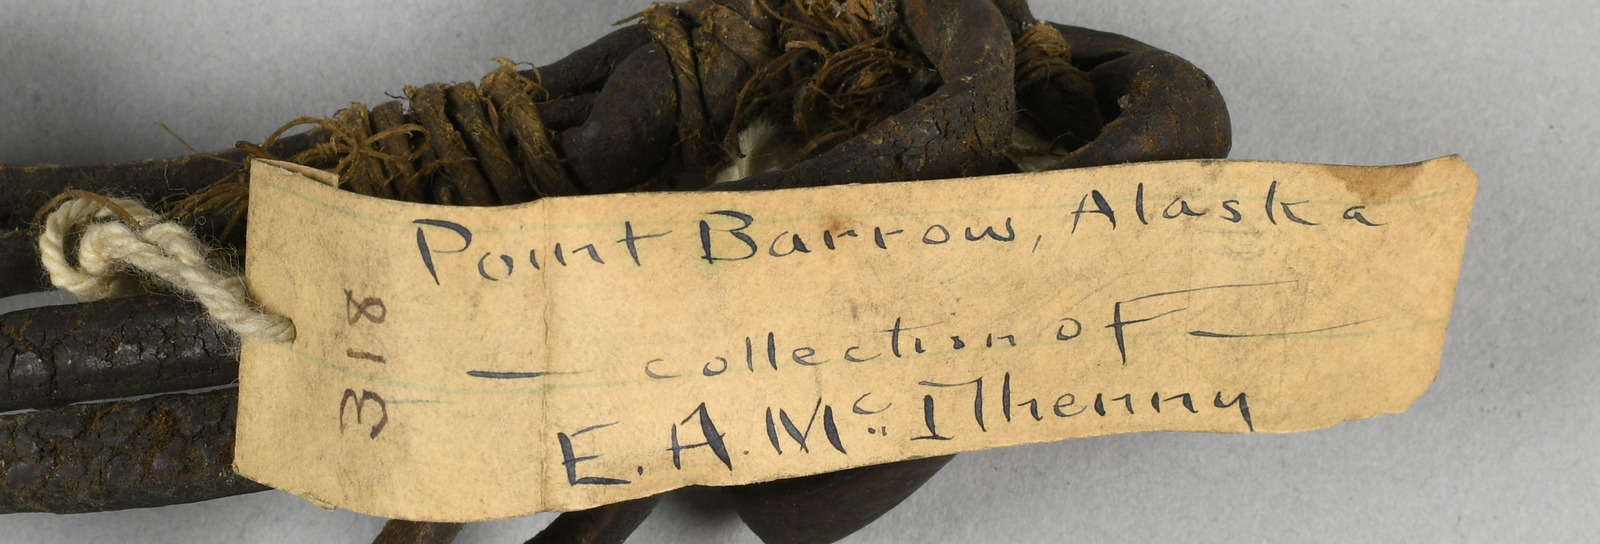 318
Point Barrow, Alaska
— collection of —
E. A. Mc Ilhenny